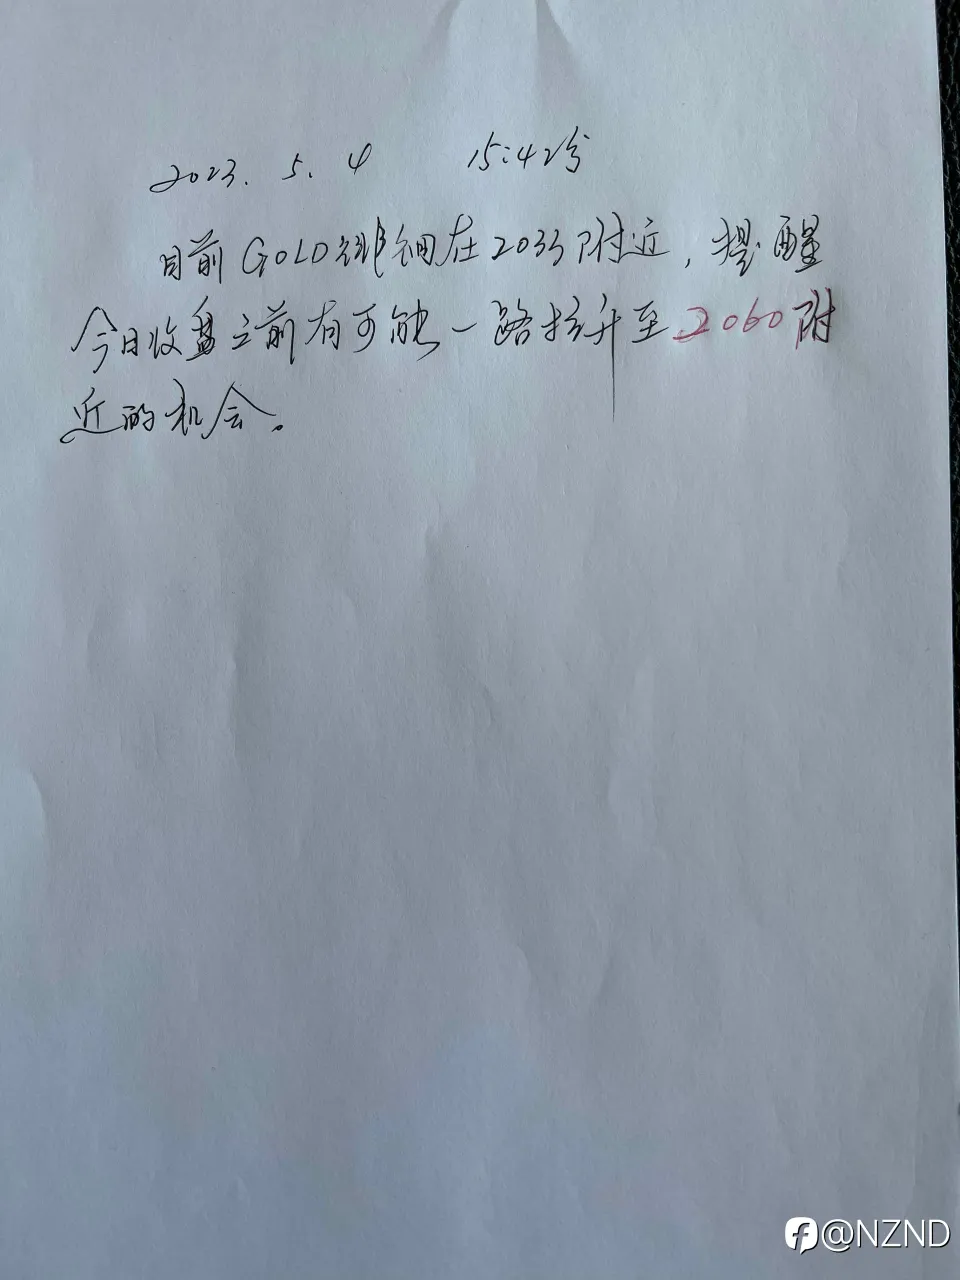 2023.5.4 15:42分
目前GOLD徘徊在2033附近,提醒
今日收盘之前有可能一路拉升至2060附
近的机会。
@NZND